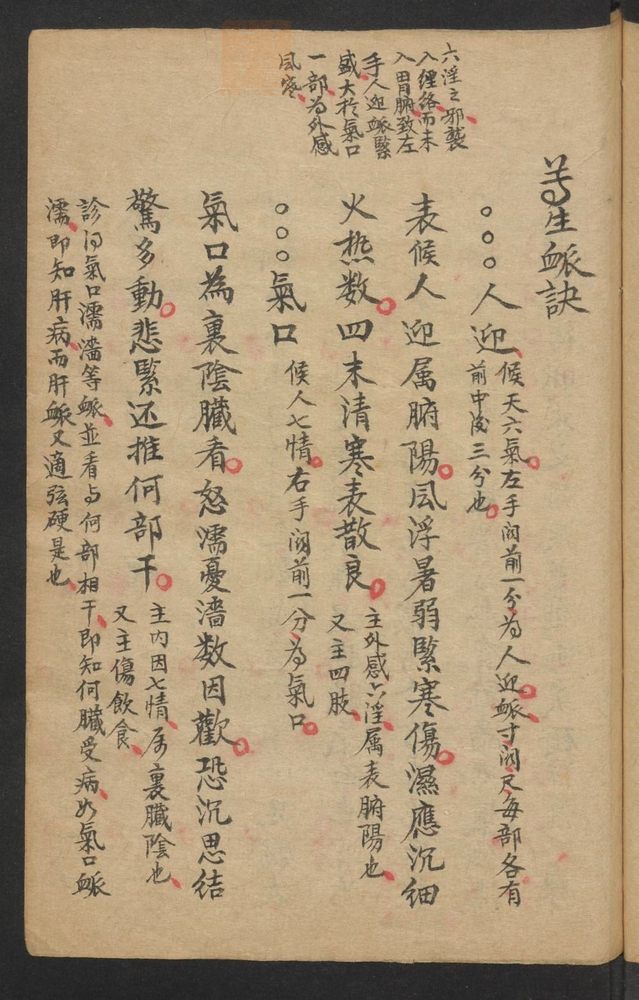 六淫之邪襲
入經絡而未
入胃腑致左
手人迎䘑緊
盛大於氣口
一部為外感
風寒
等生䘑訣
○○○人迎 候天六氣左手関前一分為人迎䘑寸関尺每部各有
前中後三分也
表候人迎属腑陽風浮暑弱緊寒傷濕應沉細
火热数四末清寒表散良 主外感六淫属表腑陽也
又主四肢
○○○氣口 候人七情右手関前一分為氣口
氣口為裏陰臟看怒濡憂濇数因歡恐沉思結
驚多動悲緊还推何部干 主内因七情属裏臟陰也
又主傷飲食
診得氣口濡濇等䘑並看与何部相干即知何臟受病如氣口䘑
濡即知肝病而肝䘑又適弦硬是也